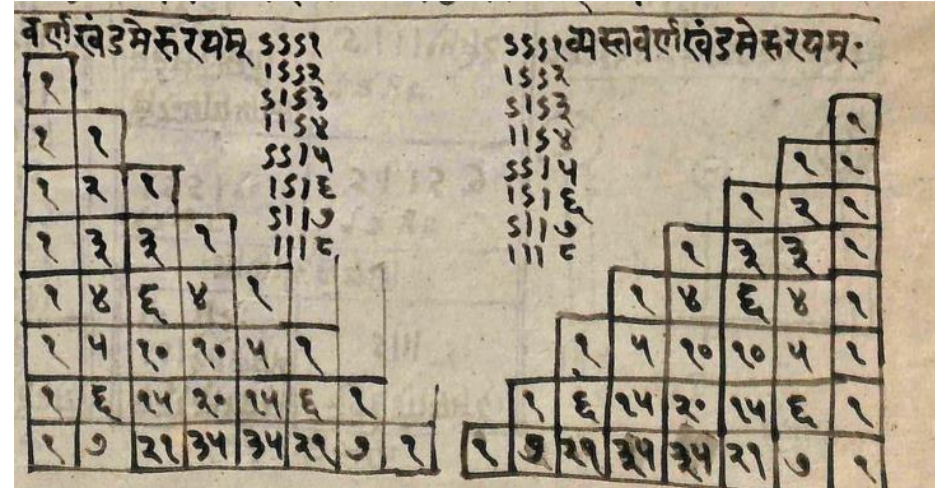 वर्णखंडमेरुरयम् ऽऽऽ१
।ऽऽ२
ऽ।ऽ३
।।ऽ४
ऽऽ।५
।ऽ।६
ऽ।।७
।।।८
१
१ १
१ २ १
१ ३ ३ १
१ ४ ६ ४ १
१ ५ १० १० ५ १
१ ६ १५ २० १५ ६ १
१ ७ २१ ३५ ३५ २१ ७ १
ऽऽऽ१ व्यस्तवर्णखंडमेरुरयम्·
।ऽऽ२
ऽ।ऽ३
।।ऽ४
ऽऽ।५
।ऽ।६
ऽ।।७
।।।८
१
१ १
१ २ १
१ ३ ३ १
१ ४ ६ ४ १
१ ५ १० १० ५ १
१ ६ १५ २० १५ ६ १
१ ७ २१ ३५ ३५ २१ ७ १